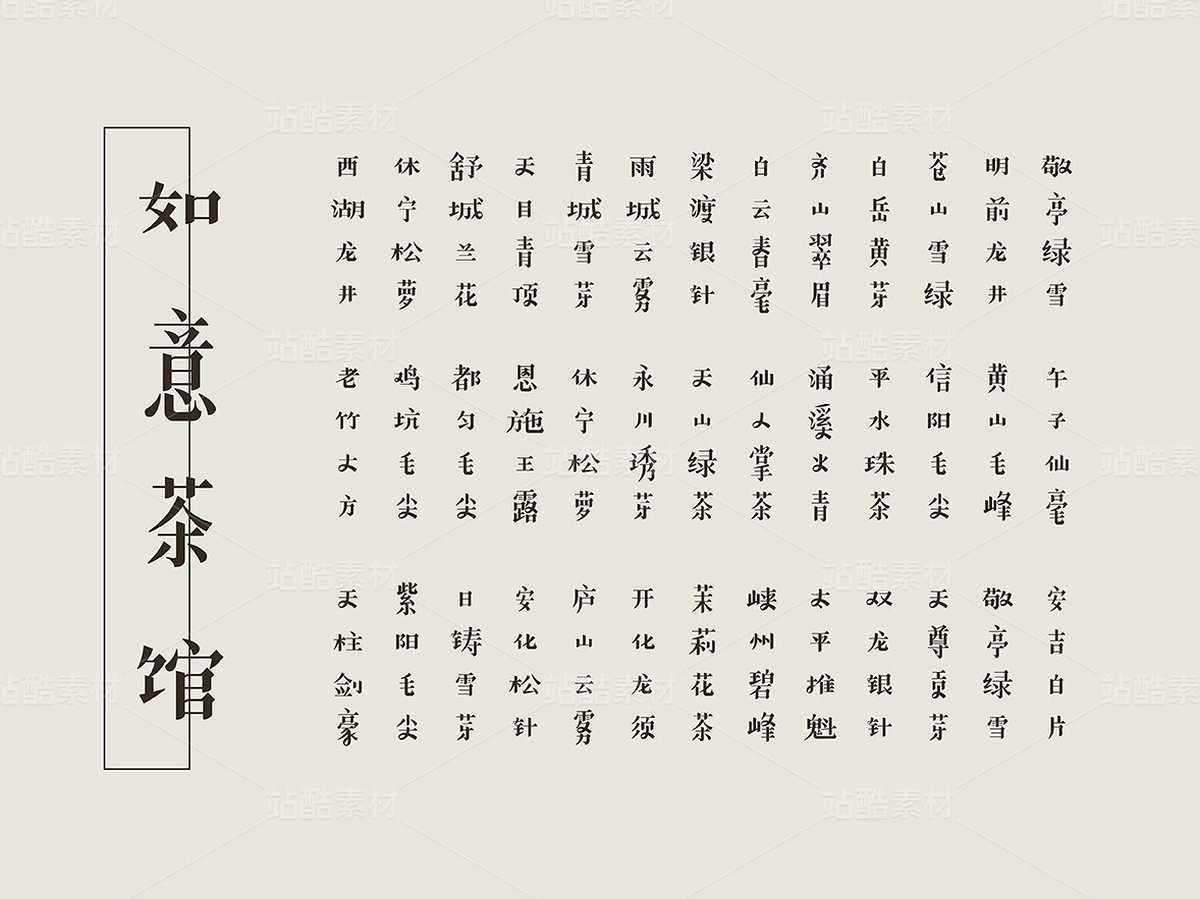 如意茶馆
西湖龙井
休宁松萝
舒城兰花
天日青顶
青城雪芽
雨城云雾
梁渡银针
白云春毫
齐山翠眉
白岳黄芽
苍山雪绿
明前龙井
敬亭绿雪
老竹大方
鸡坑毛尖
都匀毛尖
恩施王露
休宁松萝
永川诱芽
天山绿茶
仙人掌茶
涌溪火青
平水珠茶
信阳毛尖
黄山毛峰
午子仙毫
天柱剑豪
紫阳毛尖
日铸雪芽
安化松针
庐山云雾
开化龙须
茉莉花茶
峡州碧峰
太平推魁
双龙银针
天尊贡芽
敬亭绿雪
安吉白片
站酷素材